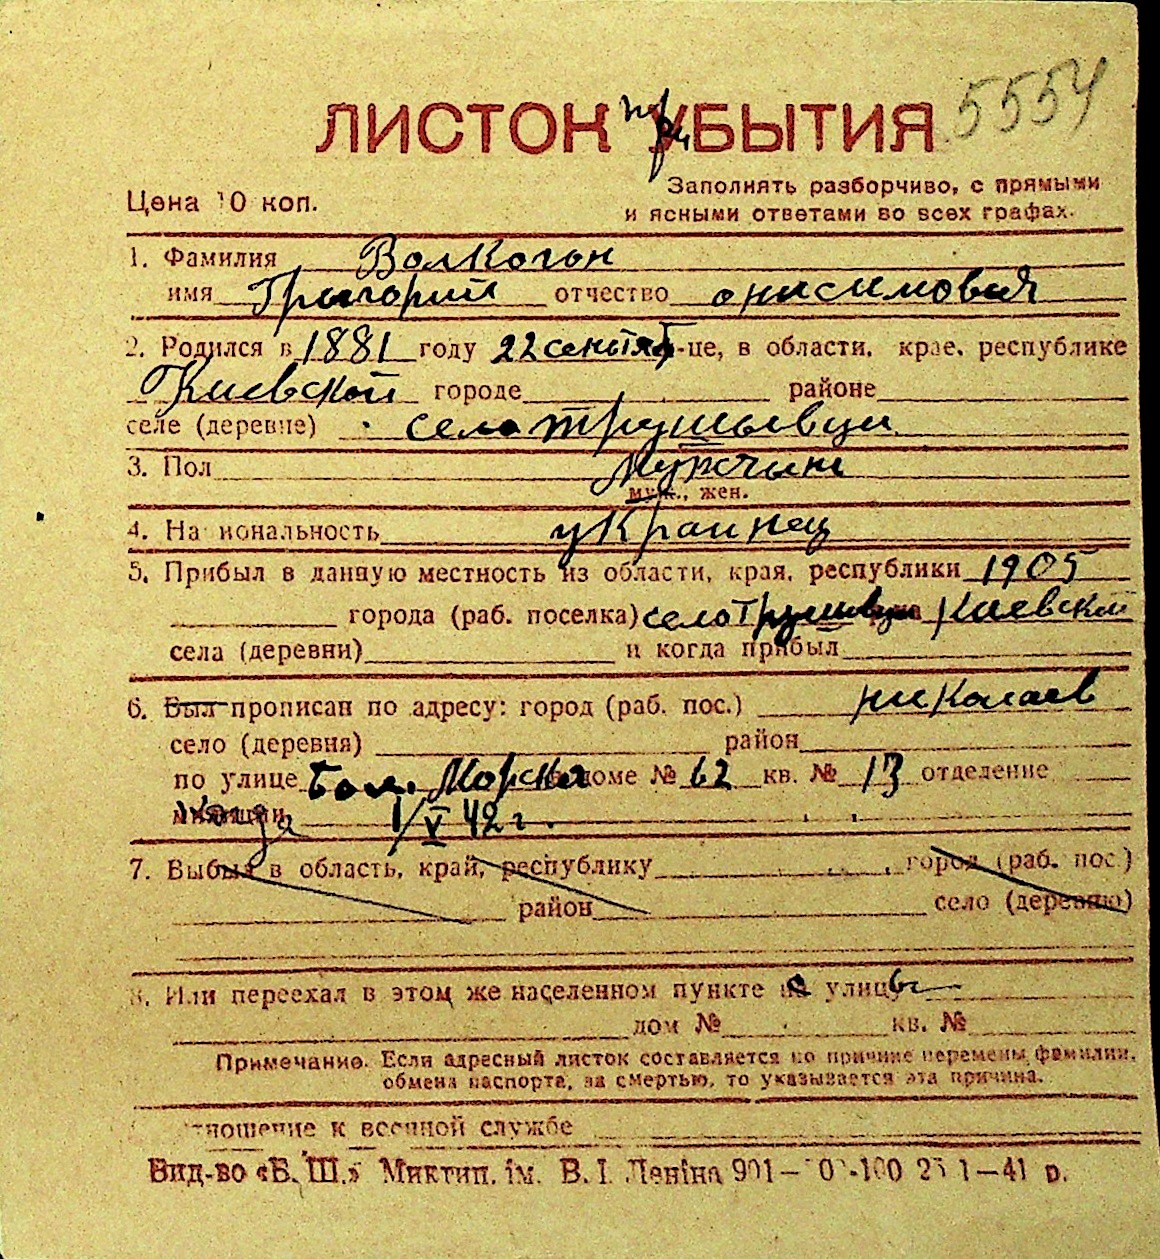 5554
ЛИСТОК при УБЫТИЯ
Цена 10 коп.
Заполнять разборчиво, с прямыми
и ясными ответами во всех графах.
1. Фамилия Волкогон
имя Грыгорий отчество онисимовия
2. Родился в 1881 году 22 сентяб -це, в области, крае, республике
Киевской городе районе
селе (деревне) село трушывци
3. Пол Мужчына
муж., жен.
4. На иональность украинец
5. Прибыл в данную местность из области, края, республики 1905
города (раб. поселка) село Трушывци Киевской
села (деревни) и когда прибыл
6. Был прописан по адресу: город (раб. пос.) николаев
село (деревня) район
по улице Бол. Морска доме № 62 кв. № 13 отделение
милиции когда 1/V 42 г.
7. Выбыл в область, край, республику город (раб. пос.)
район село (деревню)
8. Или переехал в этом же населенном пункте с улицы
дом № кв. №
Примечание. Если адресный листок составляется по причине перемены фамилии,
обмена паспорта, за смертью, то указывается эта причина.
тношение к военной службе
Вид-во «Б. Ш.» Миктип. ім. В. І. Леніна 901— 0-100 25 1—41 р.